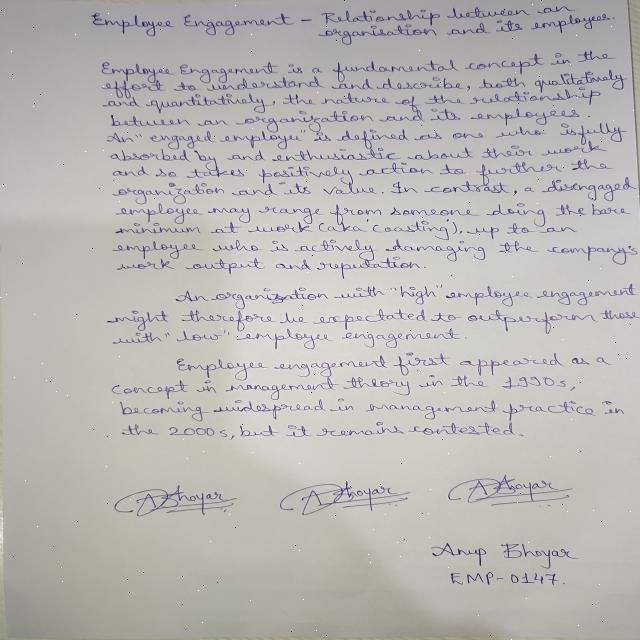 Employee Engagement – Relationship between an
organisation and its employees.
Employee Engagement is a fundamental concept in the
effort to understand and describe, both qualitatively
and quantitatively, the nature of the relationship
between an organization and its employees.
An "engaged employee" is defined as one who is fully
absorbed by and enthusiastic about their work
and so takes positively action to further the
organization and its value. In contrast, a disengaged
employee may range from someone doing the bare
minimum at work (aka coasting), up to an
employee who is actively damaging the company's
work output and reputation.
An organization with "high" employee engagement
might therefore be expectated to outperform those
with "low" employee engagement.
Employee engagement first appeared as a
concept in management theory in the 1990s,
becoming widespread in management practice in
the 2000s, but it remains contested.
ABhoyar ABhoyar ABhoyar
Anup Bhoyar
EMP-0147.